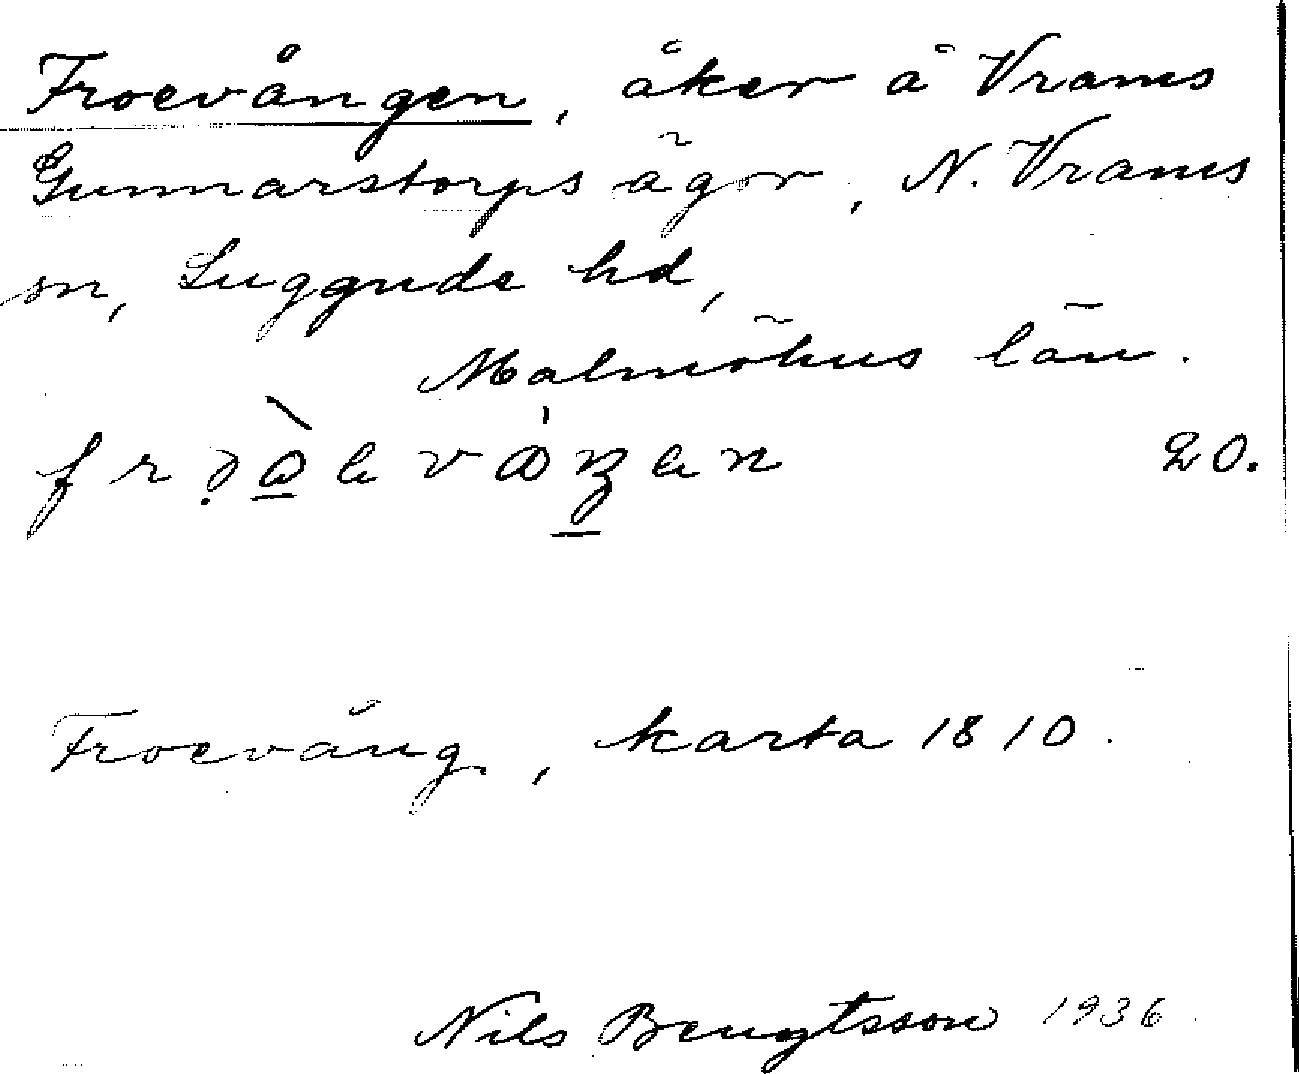 Froevången, åker å Vrams
Gunnarstorps ägor, N. Vrams
sn, Luggude hd,
Malmöhus län.
20.
Froevång, karta 1810.
Nils Bengtsson 1936